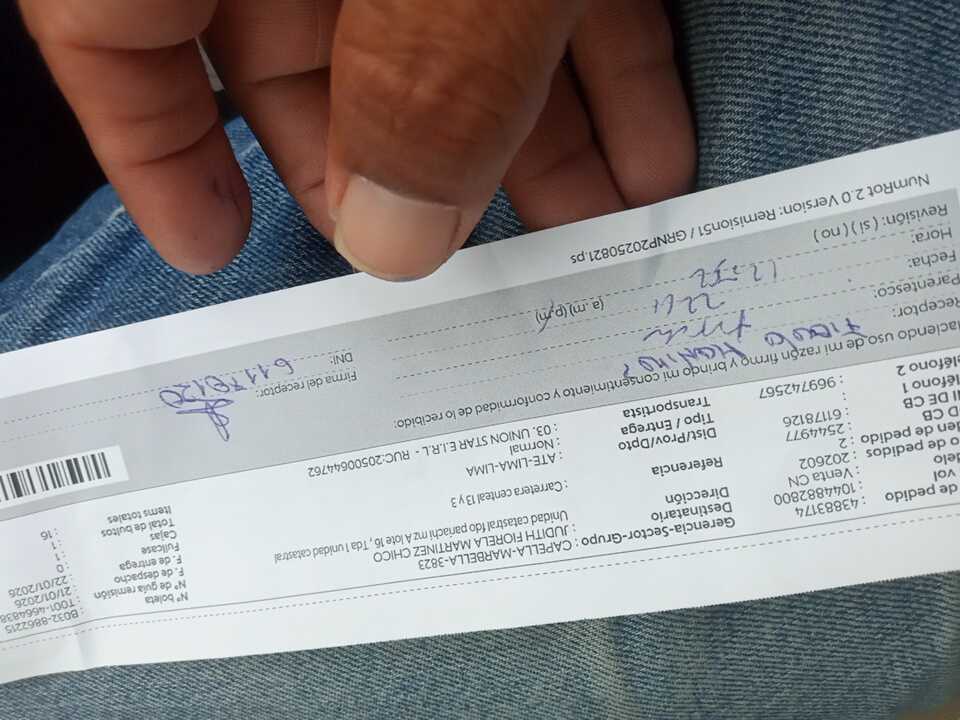 de pedido : 43883174 Gerencia-Sector-Grupo : CAPELLA-MARBELLA-3823 Nº boleta : B032-8862215
vol : 1044882800 Destinatario : JUDITH FIORELA MARTINEZ CHICO Nº de guia remisión : T001-4664838
delo : Venta CN Dirección : Unidad catastral fdo pariachi mz lote 16 , Tda 1 unidad catastral F. de despacho : 21/01/2026
o de pedidos : 202602 F. de entrega : 22/01/2026
den de pedido : 2 Referencia : Carretera centeal 13 y 3 Fullcase : 0
D CB : 2544977 Dist/Prov/Dpto : ATE-LIMA-LIMA Cajas : 1
II DE CB : 61178126 Tipo / Entrega : Normal Total de bultos : 1
eléfono 1 : 969742567 Transportista : 03. UNION STAR E.I.R.L - RUC:20500644762 Items totales : 16
eléfono 2 :
Haciendo uso de mi razón firmo y brindo mi consentimiento y conformidad de lo recibido:
Receptor: Firma del receptor:
Parentesco: DNI: 61178120
Fecha: 22
Hora: (a.m) (p.m)
Revisión: ( si ) ( no )
NumRot 2.0 Version: Remision51 / GRNP20250821.ps